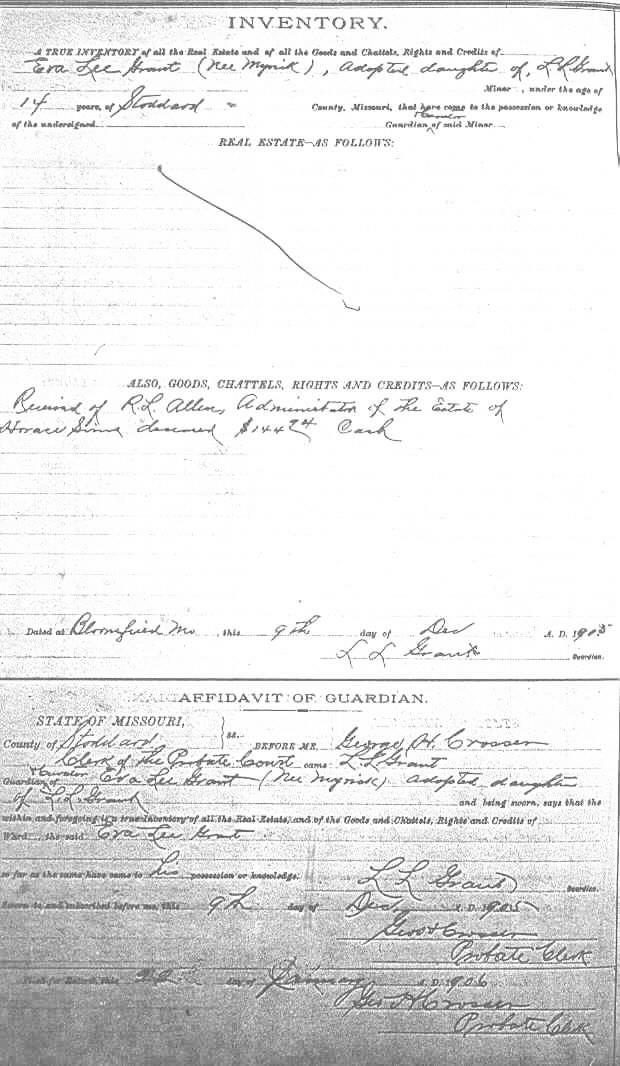 INVENTORY.
A TRUE INVENTORY of all the Real Estate and of all the Goods and Chattels, Rights and Credits of
Eva Lee Grant (Nee Myrick), Adopted daughter of, L L Grant
Minor , under the age of
14 years, of Stoddard " County, Missouri, that have come to the possession or knowledge
of the undersigned Guardian & Curator of said Minor
REAL ESTATE—AS FOLLOWS:
ALSO, GOODS, CHATTELS, RIGHTS AND CREDITS—AS FOLLOWS:
Received of R.L. Allen, Administrator of the Estate of
Horace Sims deceased $144 74 Cash
Dated at Bloomfield Mo , this 9th day of Dec A. D. 1905
L L Grant Guardian.
AFFIDAVIT OF GUARDIAN.
STATE OF MISSOURI,
County of Stoddard ss. BEFORE ME, George H. Crosser
Clerk of the Probate Court came L. L. Grant
Guardian & Curator of Eva Lee Grant (Nee Myrick) Adopted daughter
of L. L. Grant and being sworn, says that the
within and foregoing is a true Inventory of all the Real Estate, and of the Goods and Chattels, Rights and Credits of
Ward , the said Eva Lee Grant
so far as the same have come to his possession or knowledge.
L L Grant Guardian.
Sworn to and subscribed before me, this 9th day of Dec A. D. 1905
Geo H Crosser
Probate Clerk
Filed for Record, this day of A. D. 1906
Geo H Crosser
Probate Clerk